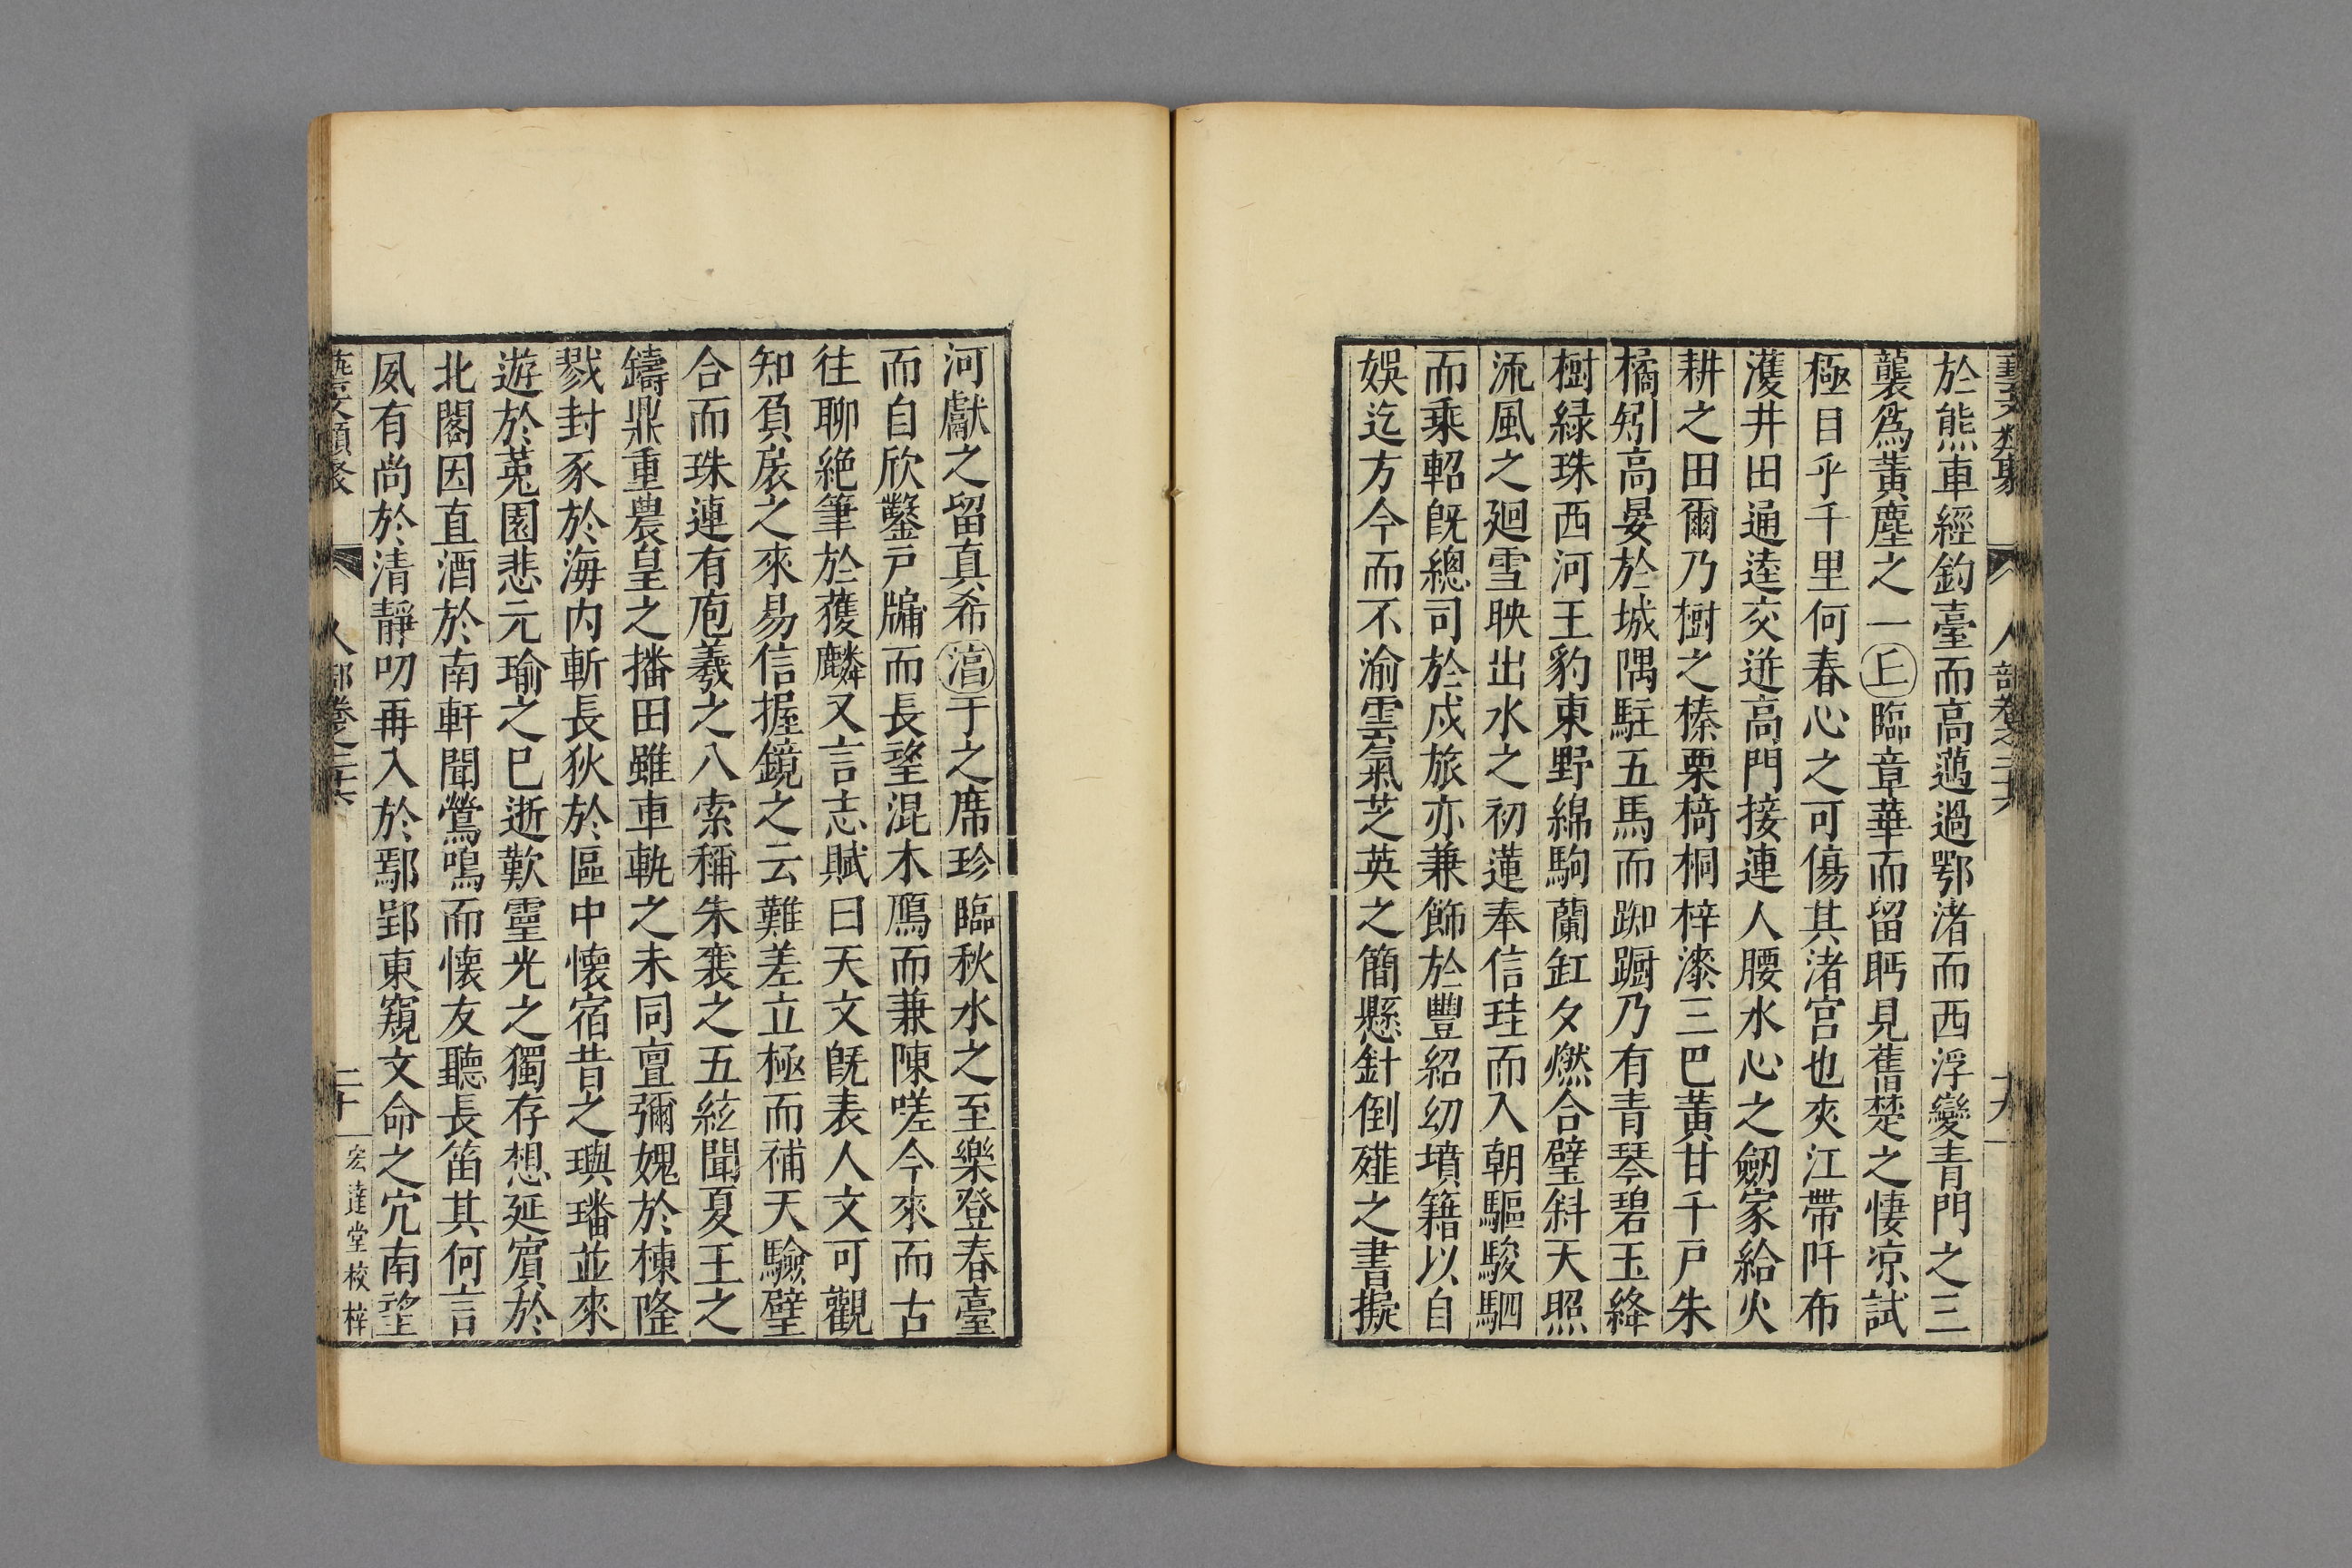 藝文類聚 人部卷之二十六 十九
於熊車經釣臺而高邁過鄂渚而西浮變青門之三
襲爲黃塵之一丘臨章華而留眄見舊楚之悽凉試
極目乎千里何春心之可傷其渚宫也夾江帶阡布
濩井田通逵交迸高門接連人腰水心之劒家給火
耕之田爾乃樹之榛栗椅桐梓漆三巴黃甘千戸朱
橘矧高晏於城隅駐五馬而踟蹰乃有青琴碧玉絳
樹綠珠西河王豹東野綿駒蘭缸夕燃合璧斜天照
流風之廻雪映出水之初蓮奉信珪而入朝驅駿駟
而乘軺旣總司於戍旅亦兼飾於豐紹幼墳籍以自
娛迄方今而不渝雲氣芝英之簡懸針倒薤之書擬
河獻之留真希滈于之席珍臨秋水之至樂登春臺
而自欣鑿戸牖而長望混木鴈而兼陳嗟今來而古
往聊絶筆於獲麟又言志賦曰天文旣表人文可觀
知負扆之來易信握鏡之云難差立極而補天驗璧
合而珠連有庖羲之八索稱朱襄之五絃聞夏王之
鑄鼎重農皇之播田雖車軌之未同亶彌媿於棟隆
戮封豕於海内斬長狄於區中懷宿昔之璵璠並來
遊於菟園悲元瑜之已逝歎靈光之獨存想延賓於
北閣因直酒於南軒聞鶯鳴而懷友聽長笛其何言
夙有尚於清靜叨再入於鄢郢東窺文命之穴南望
藝文類聚 人部卷之二十六 二十 宏達堂校梓